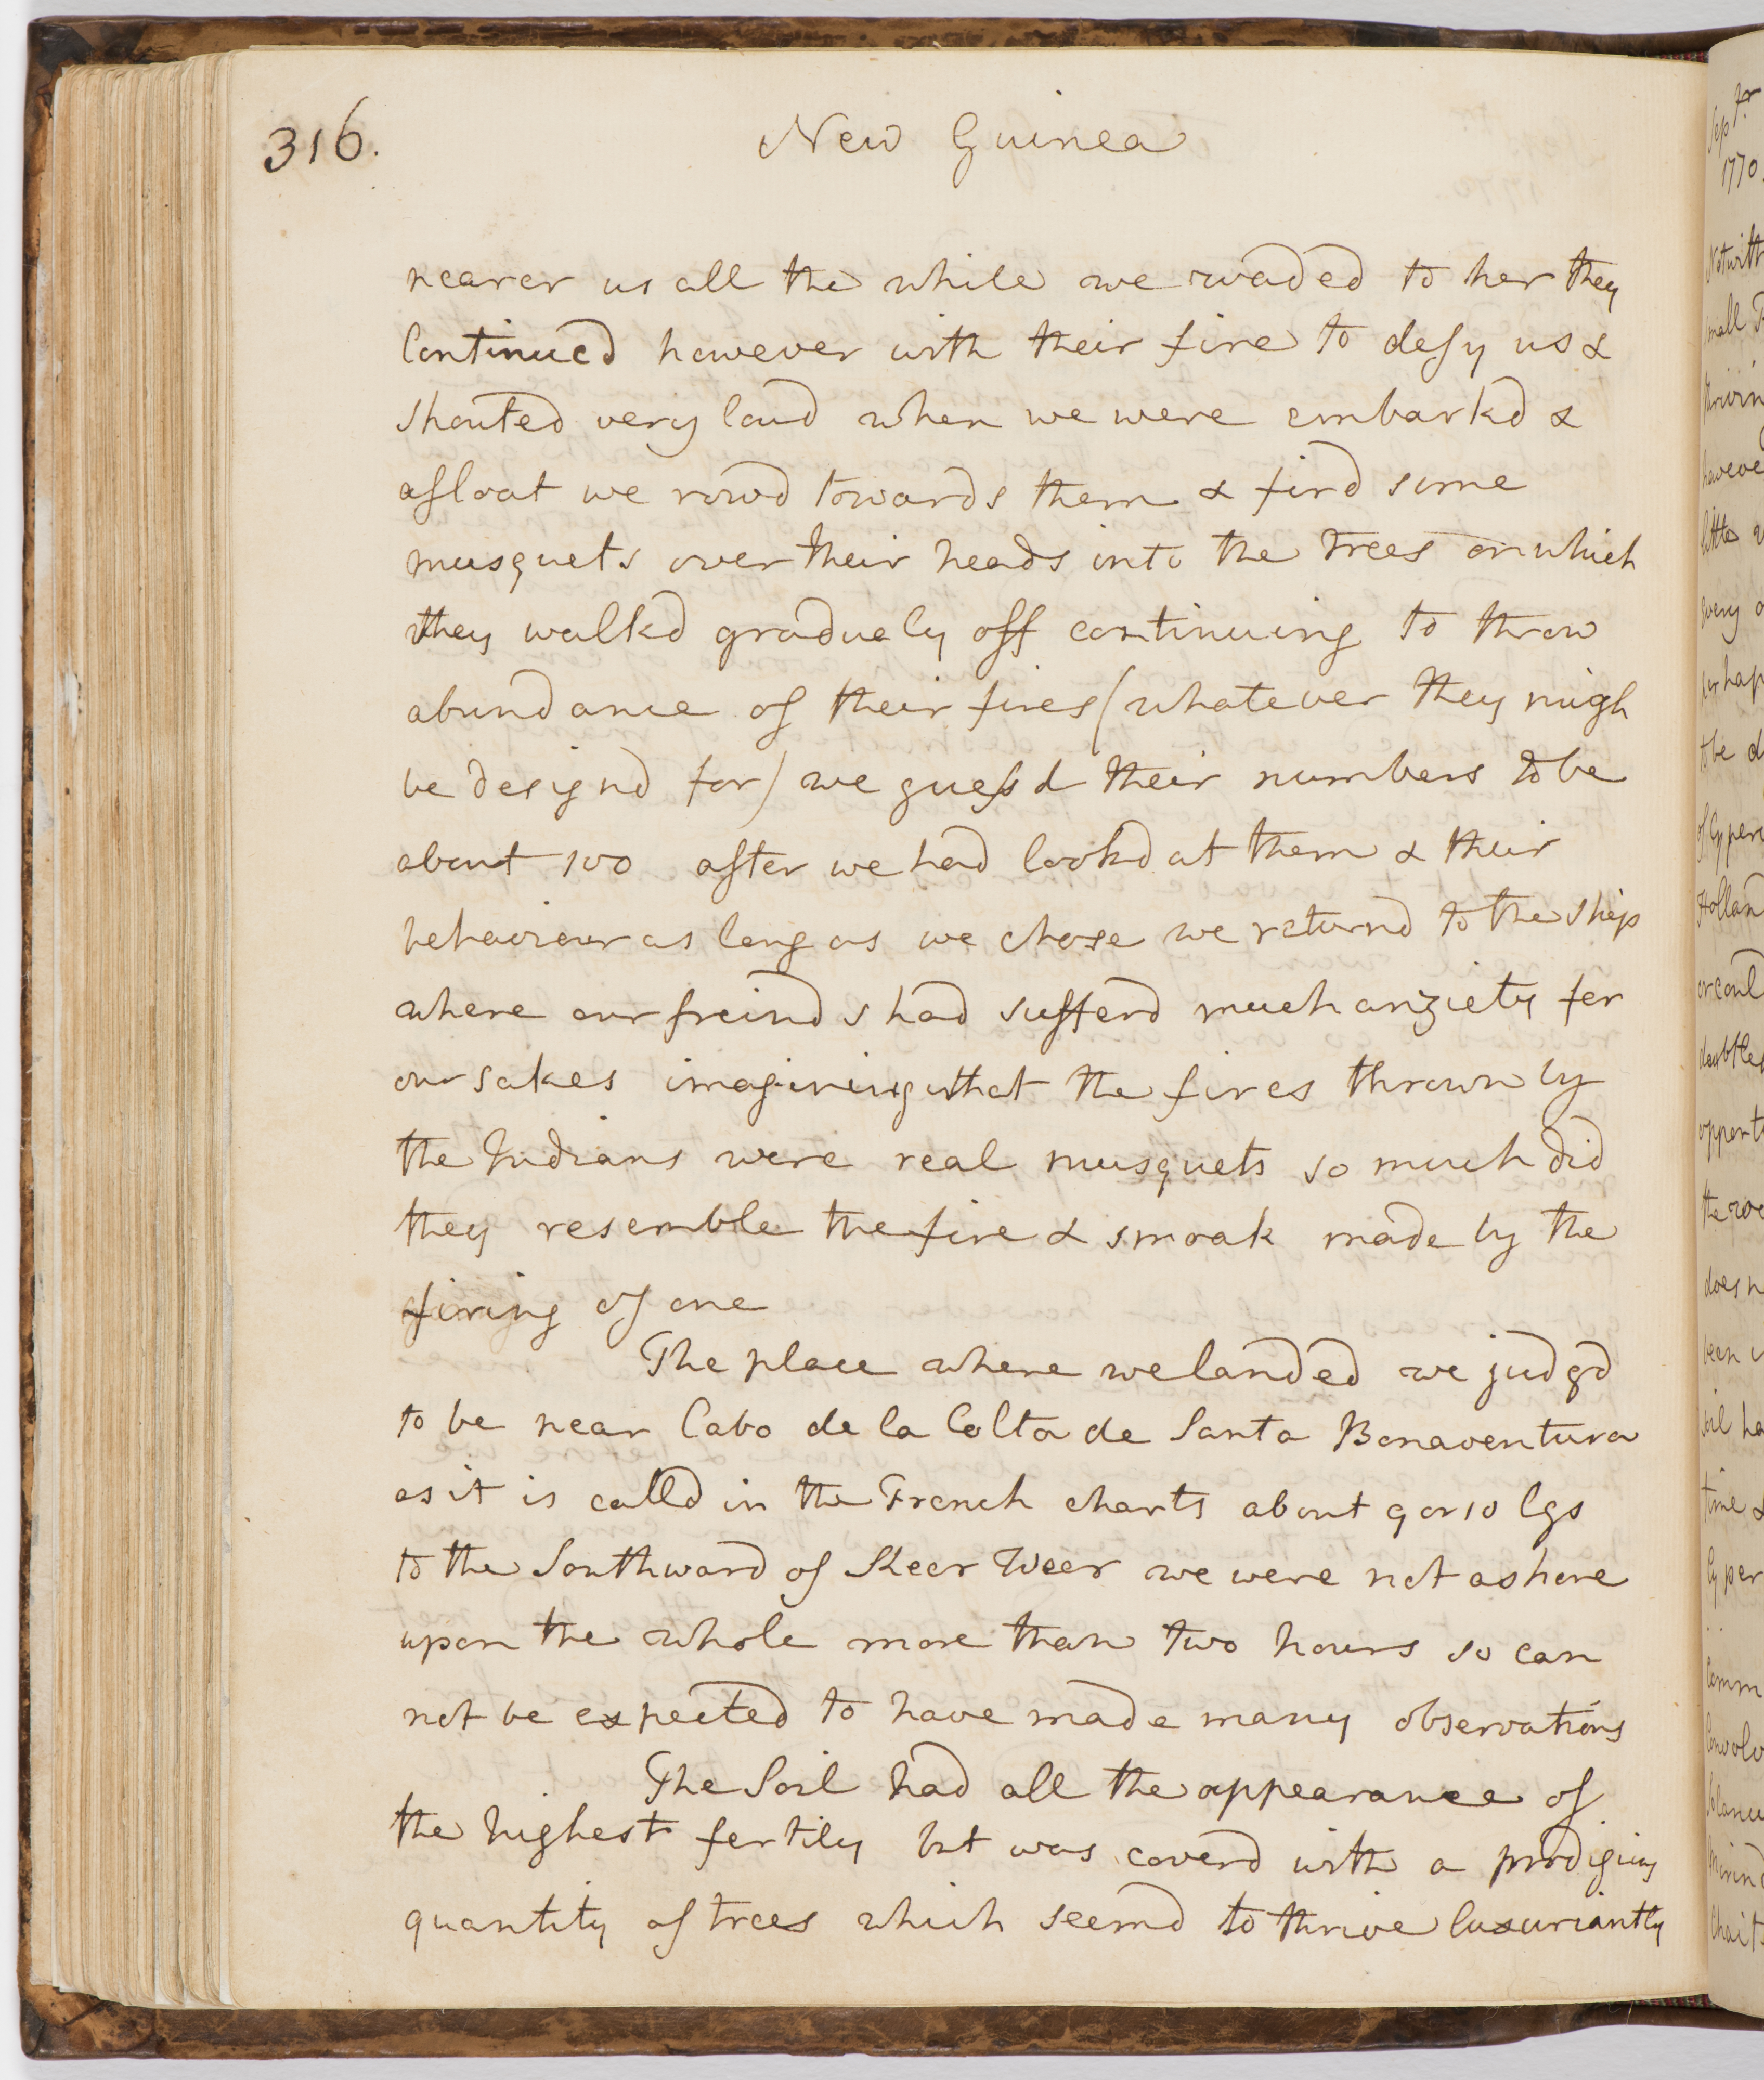 316.
New Guinea
nearer us all the while we waded to her they
Continued however with their fire to defy us &
shouted very loud when we were embarkd &
afloat we rowd towards them & fird some
musquets over their heads into the trees on which
they walkd gradualy off continuing to throw
abundance of their fires (whatever they migh
be designd for) we guessd their numbers to be
about 100 after we had lookd at them & their
behaviour as long as we chose we returnd to the ship
where our freinds had sufferd much anxiety for
our sakes imagining that the fires thrown by
the Indians were real musquets so much did
they resemble the fire & smoak made by the
firing of one
The place where we landed we judgd
to be near Cabo de la Colta de Santa Bonaventura
as it is calld in the French charts about 9 or 10 lgs
to the Southward of Keer Weer we were not ashore
upon the whole more than two hours so can
not be expected to have made many observations
The Soil had all the appearance of
the highest fertily but was coverd with a prodigius
quantity of trees which seemd to thrive luxuriantly
Sepr
1770